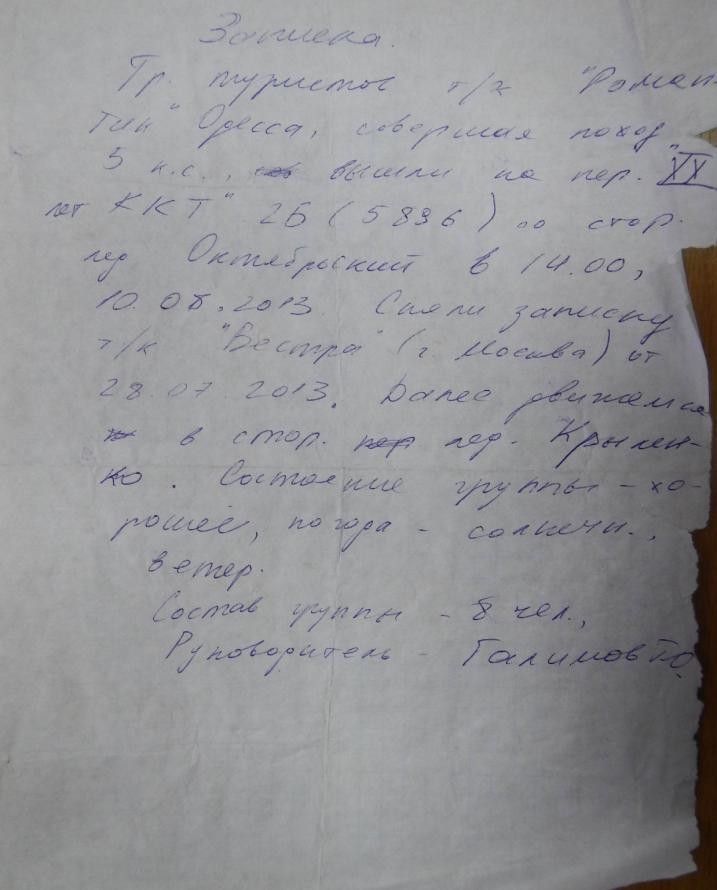 Записка.
Гр. туристов т/к "Роман-
тик" Одесса, совершая поход
5 к.с., вышли на пер. "XX
лет ККТ" 2Б (5896) со стор.
лед Октябрьский в 14.00,
10.08.2013. Сняли записку
т/к "Вестра" (г. Москва) от
28.07.2013. Далее движемся
в стор. лед. Крылен-
ко. Состояние группы - хо-
рошее, погода - солнечн.,
ветер.
Состав группы - 8 чел.,
Руководитель - Галимов